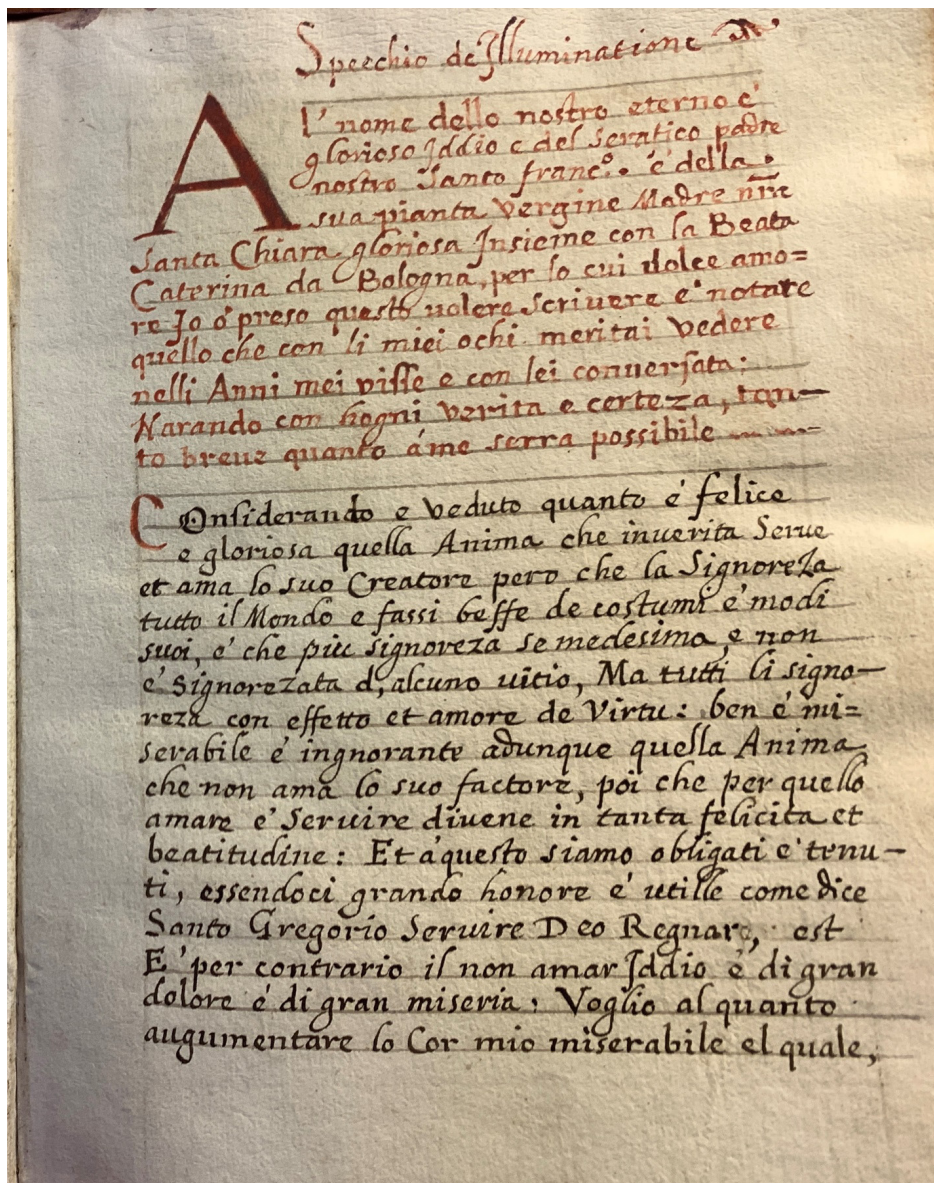 Specchio de Illuminatione
Al' nome dello nostro eterno é
glorioso Iddio e del Serafico padre
nostro Santo franc.º é della
sua pianta Vergine Madre nr̃e
Santa Chiara gloriosa Insieme con la Beata
Caterina da Bologna, per lo cui dolce amo=
re Io ó preso questo volere scrivere é notare
quello che con li miei ochi meritai vedere
nelli Anni mei visse e con lei conversata:
Narando con hogni verita e certeza, tan-
to breve quanto á me serra possibile
COnsiderando e veduto quanto é felice
e gloriosa quella Anima che inverita Serve
et ama lo suo Creatore pero che la Signoreza
tutto il Mondo e fassi beffe de costumi é modi
suoi, é che piu signoreza se medesima, e non
é Signorezata d, alcuno uitio, Ma tutti li signo-
reza con effetto et amore de Virtu: ben é mi=
serabile é ingnorante adunque quella Anima
che non ama lo suo factore, poi che per quello
amare é Seruire divene in tanta felicita et
beatitudine: Et á questo siamo obligati é tenu-
ti, essendoci grando honore é utille come dice
Santo Gregorio Seruire Deo Regnare, est
E' per contrario il non amar Iddio é di gran
dolore é di gran miseria: Voglio al quanto
augumentare lo Cor mio miserabile el quale,